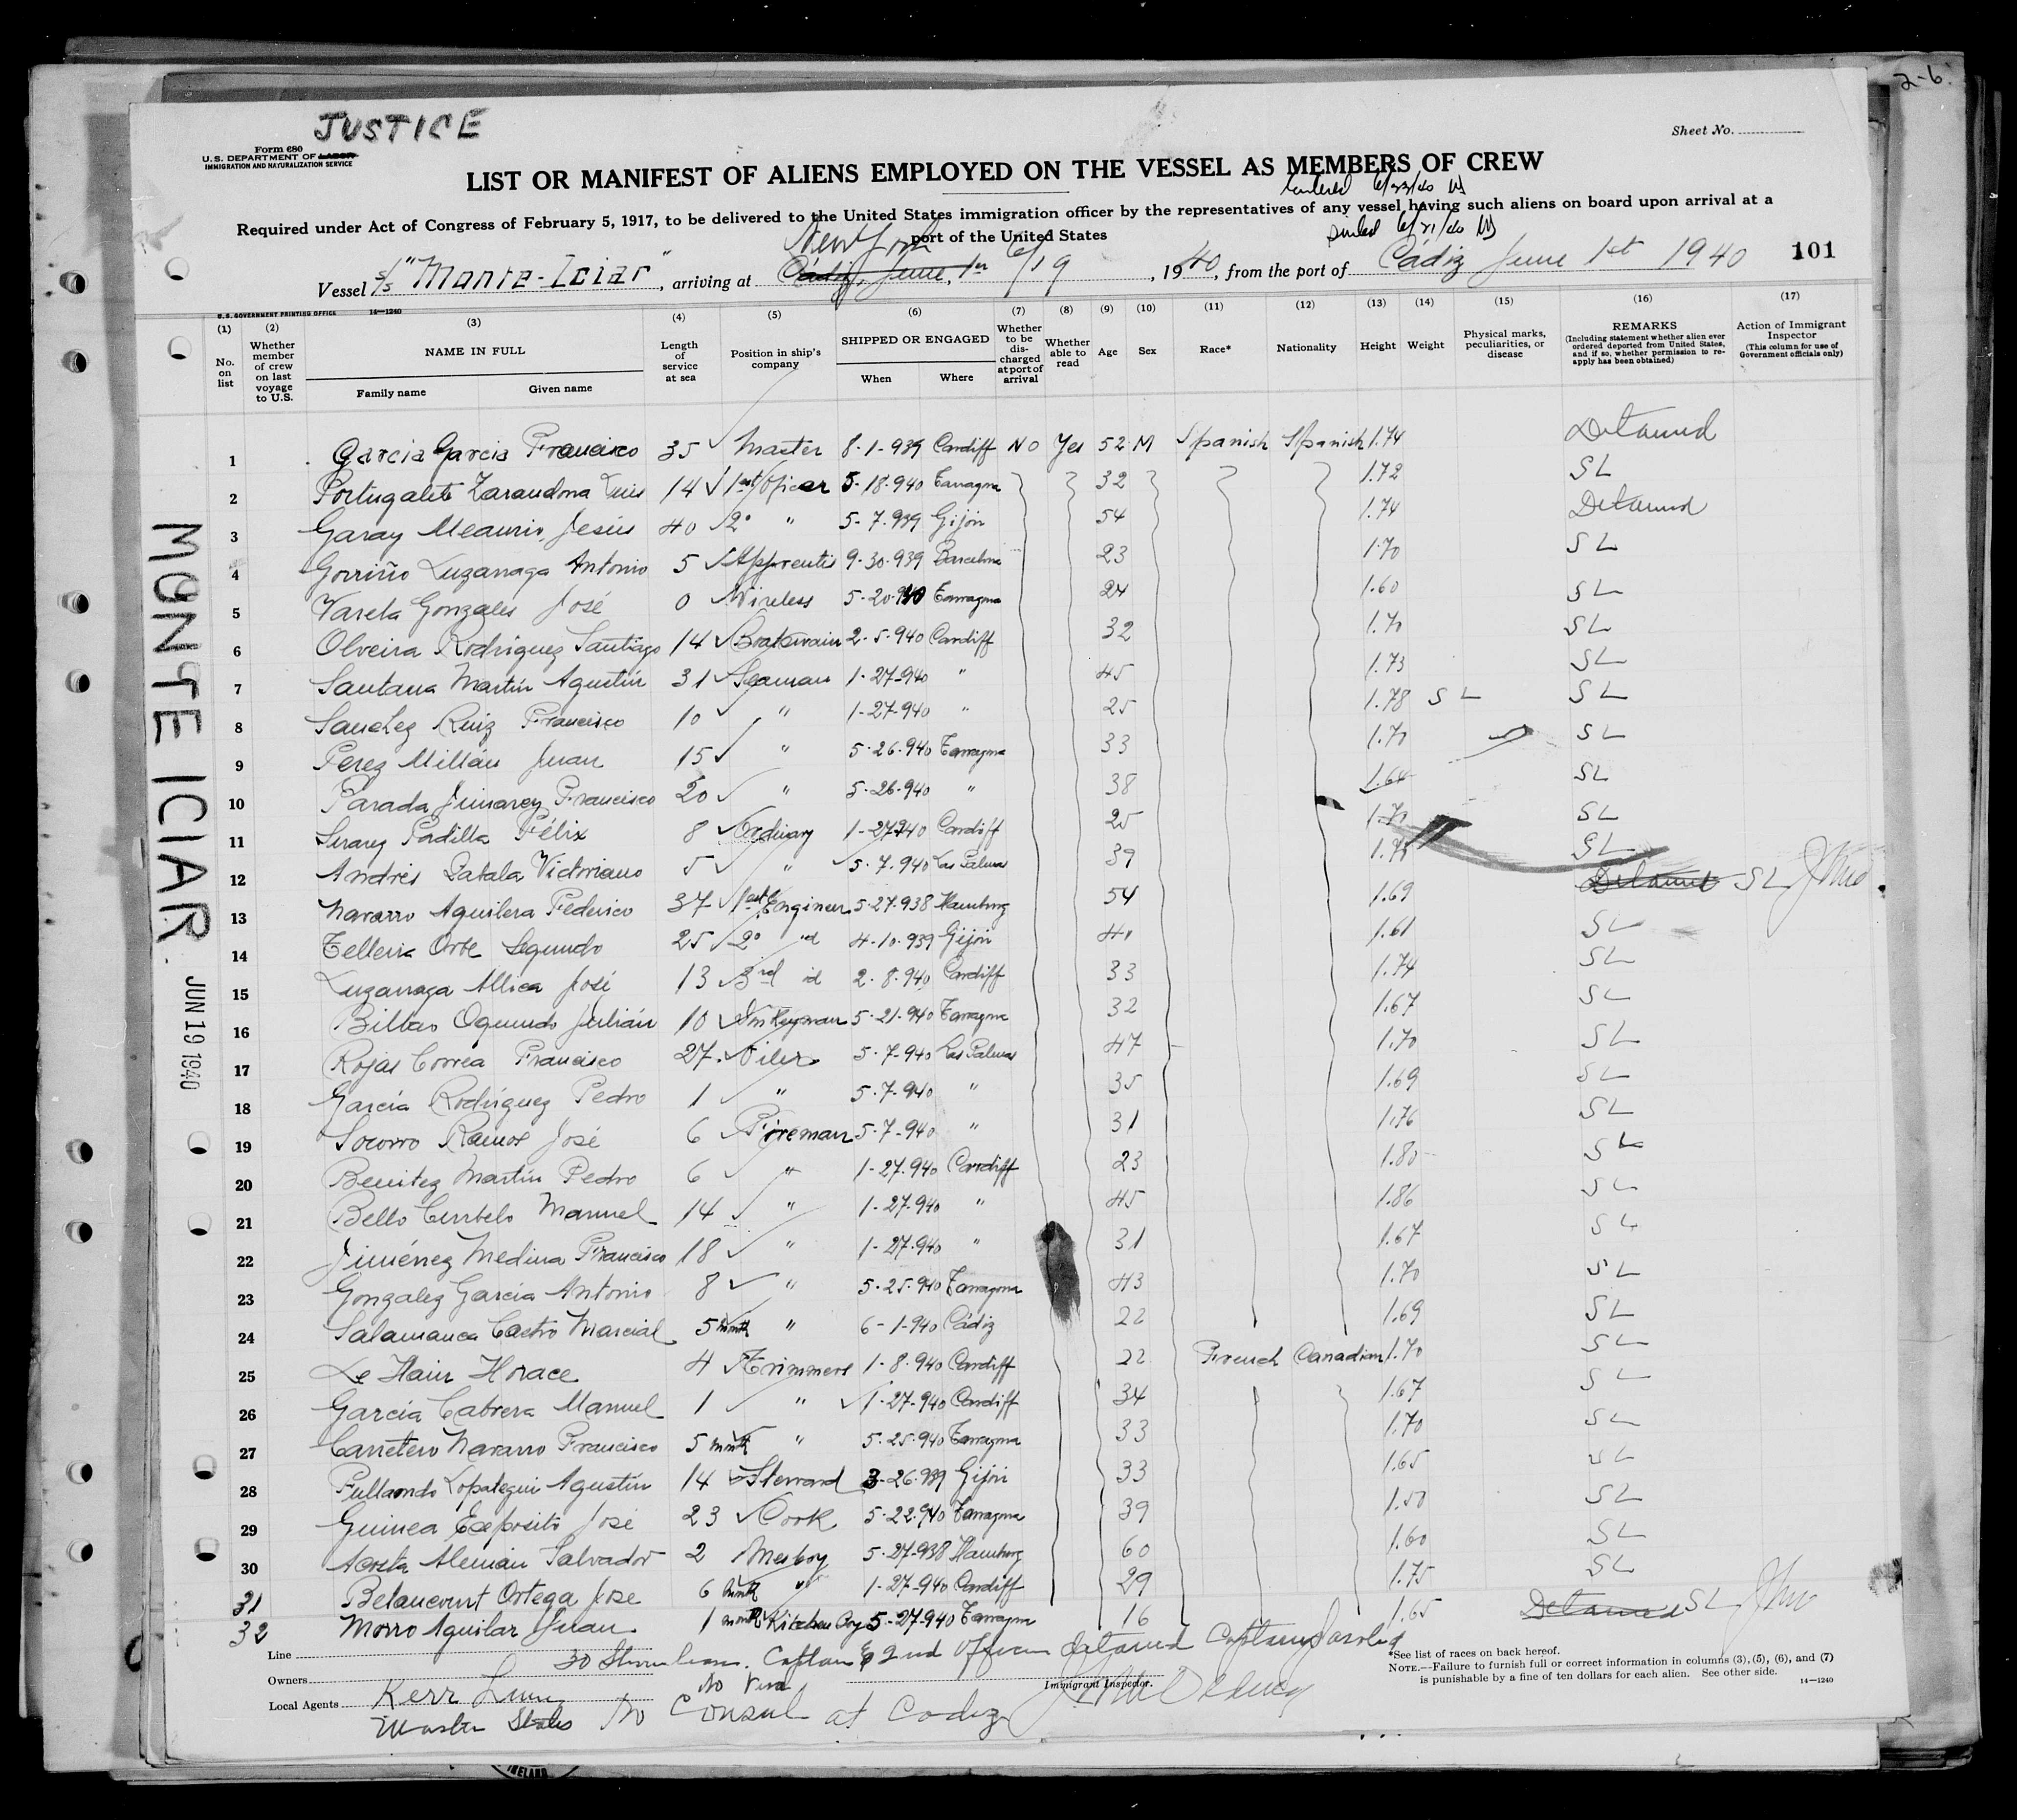 2-6.
JUSTICE
Form 680
U.S. DEPARTMENT OF LABOR
IMMIGRATION AND NATURALIZATION SERVICE
Sheet No.
LIST OR MANIFEST OF ALIENS EMPLOYED ON THE VESSEL AS MEMBERS OF CREW
6/23/40
Required under Act of Congress of February 5, 1917, to be delivered to the United States immigration officer by the representatives of any vessel having such aliens on board upon arrival at a
port of the United States
6/21/40
New York
Vessel s/s "Monte-Iciar", arriving at Cádiz, June, 1st 6/19, 1940, from the port of Cádiz June 1st 1940 101
U.S. GOVERNMENT PRINTING OFFICE 14—1240
(1) (2) (3) (4) (5) (6) (7) (8) (9) (10) (11) (12) (13) (14) (15) (16) (17)
No. on list
Whether member of crew on last voyage to U.S.
NAME IN FULL
Family name Given name
Length of service at sea
Position in ship's company
SHIPPED OR ENGAGED
When Where
Whether to be discharged at port of arrival
Whether able to read
Age
Sex
Race*
Nationality
Height
Weight
Physical marks, peculiarities, or disease
REMARKS
(Including statement whether alien ever ordered deported from United States, and if so, whether permission to reapply has been obtained)
Action of Immigrant Inspector
(This column for use of Government officials only)
1 Garcia Garcia Francisco 35 Master 8-1-939 Cardiff NO Yes 52 M Spanish Spanish 1.74 Detained
2 Portugalete Zarandona Luis 14 1st Oficer 5-18-940 Tarragona 32 1.72 SL
3 Garay Meaurio, Jesús 40 2º " 5-7-939 Gijón 54 1.74 Detained
4 Gorriño Luzarraga Antonio 5 Apprentis 9-30-939 Barcelona 23 1.70 SL
5 Varela Gonzales José 0 Wireless 5-20-940 Tarragona 24 1.60 SL
6 Olveira Rodriguez Santiago 14 Boatswain 2-5-940 Cardiff 32 1.70 SL
7 Santana Martín Agustín 31 Seaman 1-27-940 " 45 1.73 SL
8 Sanchez Ruiz Francisco 10 " 1-27-940 " 25 1.78 SL SL
9 Perez Millán Juan 15 " 5-26-940 Tarragona 33 1.70 SL
10 Parada Jimarez Francisco 20 " 5-26-940 " 38 1.64 SL
11 Suarez Padilla Félix 8 Ordinary 1-27-940 Cardiff 25 1.70 SL
12 Andrés Zabala Victoriano 5 " 5-7-940 Las Palmas 39 SL
13 Navarro Aguilera Federico 37 1st Engineer 5-27-938 Hamburg 54 1.69 Detained SL
14 Telleria Orbe Segundo 25 2º id 4-10-939 Gijón 40 1.61 SL
15 Luzarraga Allica José 13 3rd id 2-8-940 Cardiff 33 1.74 SL
16 Bilbao Oguendo Julián 10 Donkeyman 5-21-940 Tarragona 32 1.67 SL
17 Rojas Correa Francisco 27 Oiler 5-7-940 Las Palmas 47 1.70 SL
18 García Rodríguez Pedro 1 " 5-7-940 " 35 1.69 SL
19 Socorro Ramos José 6 Fireman 5-7-940 " 31 1.76 SL
20 Benitez Martín Pedro 6 " 1-27-940 Cardiff 23 1.80 SL
21 Bello Curbelo Manuel 14 " 1-27-940 " 45 1.86 SL
22 Jiménez Medina Francisco 18 " 1-27-940 " 31 1.67 SL
23 Gonzalez García Antonio 8 " 5-25-940 Tarragona 43 1.70 SL
24 Salamanca Castro Marcial 5 month " 6-1-940 Cádiz 22 1.69 SL
25 Le Hain Horace 4 Trimmers 1-8-940 Cardiff 22 French Canadian 1.70 SL
26 García Cabrera Manuel 1 " 1-27-940 Cardiff 34 1.67 SL
27 Carretero Navarro Francisco 5 month " 5-25-940 Tarragona 33 1.70 SL
28 Fullaondo Lopategui Agustín 14 Steward 3-26-939 Gijón 33 1.65 SL
29 Guinea Exposito José 23 Cook 5-22-940 Tarragona 39 1.50 SL
30 Acosta Alemán Salvador 2 Mesboy 5-27-938 Hamburg 60 1.60 SL
31 Betancourt Ortega Jose 6 month " 1-27-940 Cardiff 29 1.75 SL
32 Morro Aguilar Juan 1 month Kitchen Boy 5-27-940 Tarragona 16 1.65 Detained SL
Line
30 Captain & 2nd Officer detained
Owners
No Visa
Immigrant Inspector.
Local Agents Kerr Line
Master States No Consul at Cadiz
*See list of races on back hereof.
NOTE.—Failure to furnish full or correct information in columns (3), (5), (6), and (7)
is punishable by a fine of ten dollars for each alien. See other side.
14—1240
MONTE ICIAR. JUN 19 1940
IRELAND